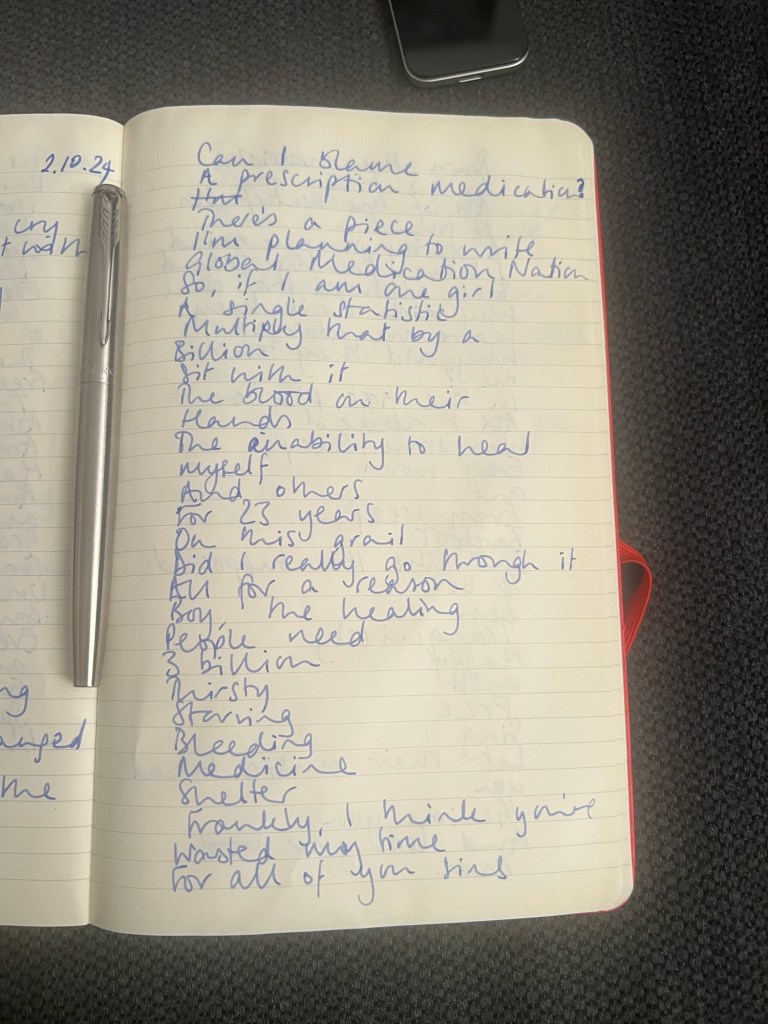 2.10.24
cry
t with
ng
anged
me
Can I blame
A prescription medication?
There's a piece
I'm planning to write
Global Medication Nation
So, if I am one girl
A single statistic
Multiply that by a
Billion
Sit with it
The blood on their
Hands
The inability to heal
myself
And others
For 23 years
On this grail
Did I really go through it
All for a reason
Boy, the healing
People need
3 billion
Thirsty
Starving
Bleeding
Medicine
Shelter
Frankly, I think you've
Wasted my time
For all of you sins